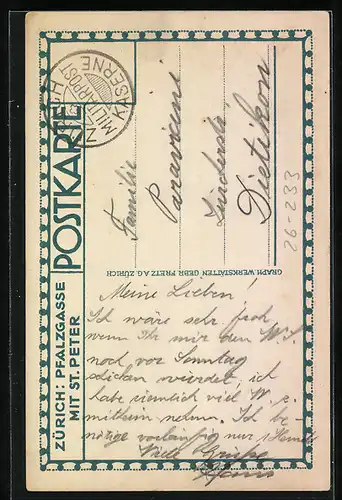 ZÜRICH: PFALZGASSE
MIT ST. PETER
POSTKARTE
MILITÄRPOST
KASERNE
ZÜRICH
Familie
Paravicini
Dietikon
26-233
GRAPH. WERKSTÄTTEN GEBR. FRETZ A.G. ZÜRICH
Meine Lieben!
Ich wäre sehr froh
wenn Ihr mir den W. S.
noch vor Sonntag
schicken würdet, ich
habe ziemlich viel W. z.
mitheim nehmen. Ich be-
nötige vorläufig nur 1 Hemd
Viele Grüsse